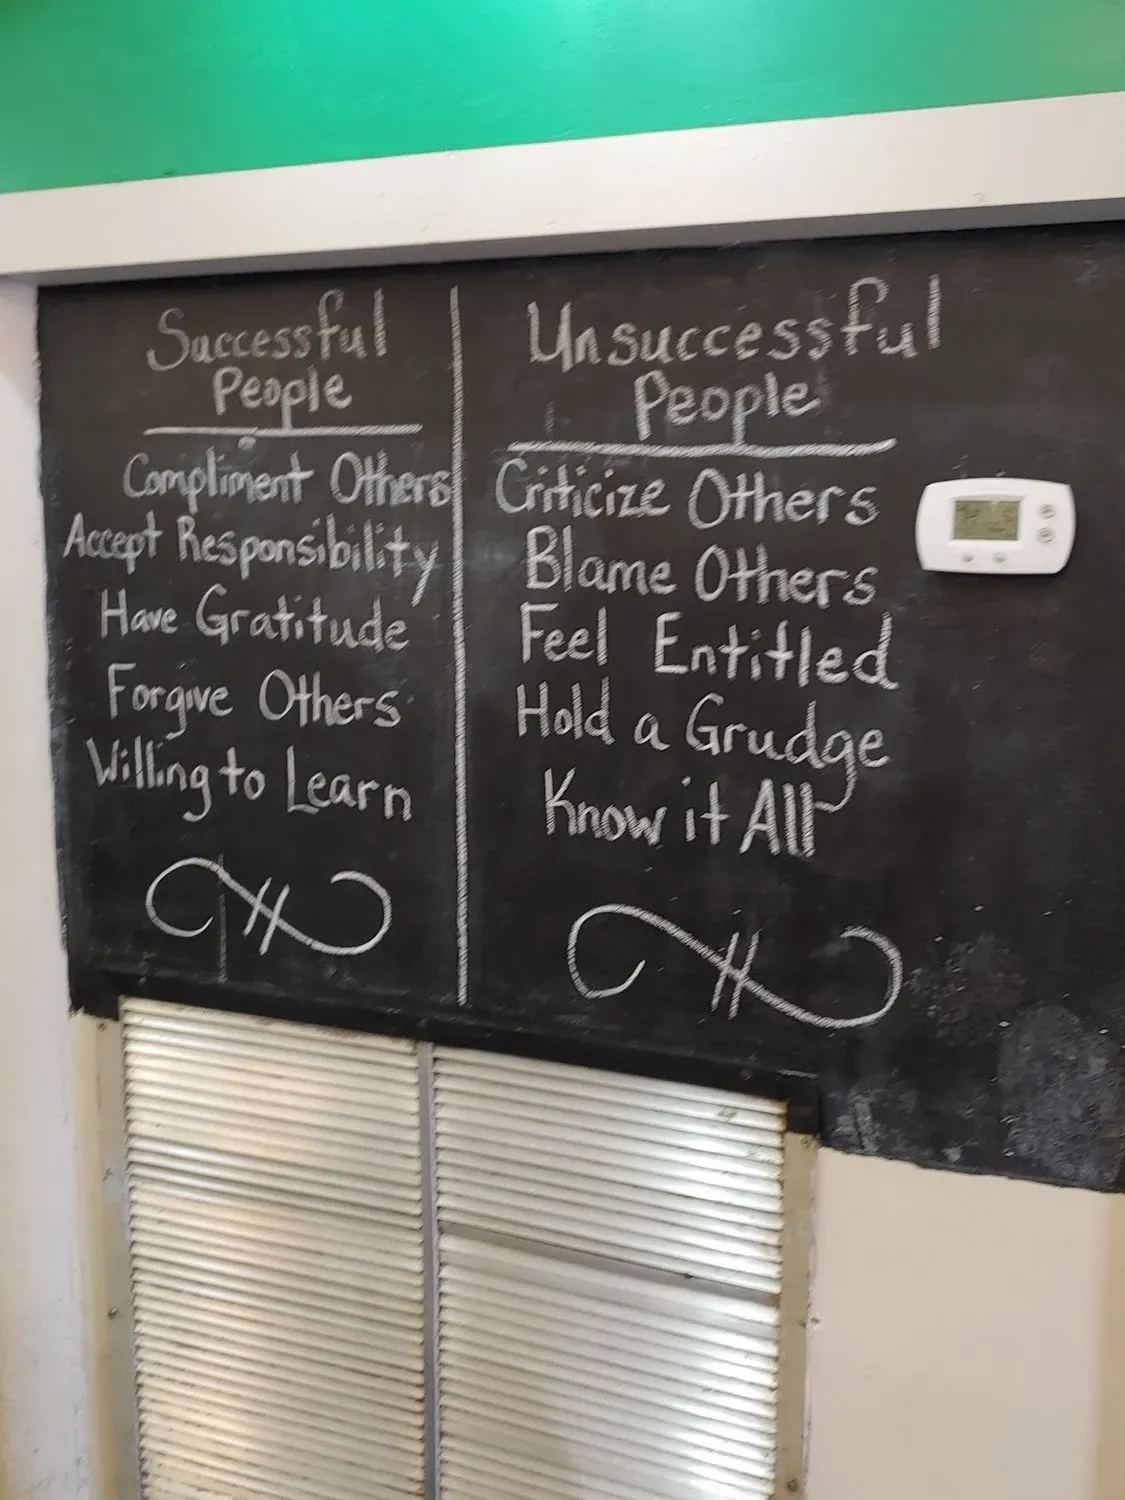 Successful
People
Compliment Others
Accept Responsibility
Have Gratitude
Forgive Others
Willing to Learn
Unsuccessful
People
Criticize Others
Blame Others
Feel Entitled
Hold a Grudge
Know it All